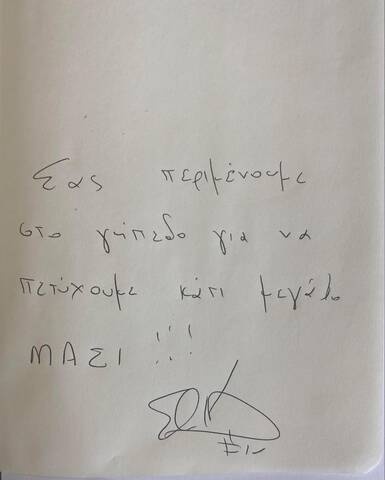 Σας περιμένουμε
στο γήπεδο για να
πετύχουμε κάτι μεγάλο
ΜΑΖΙ !!!